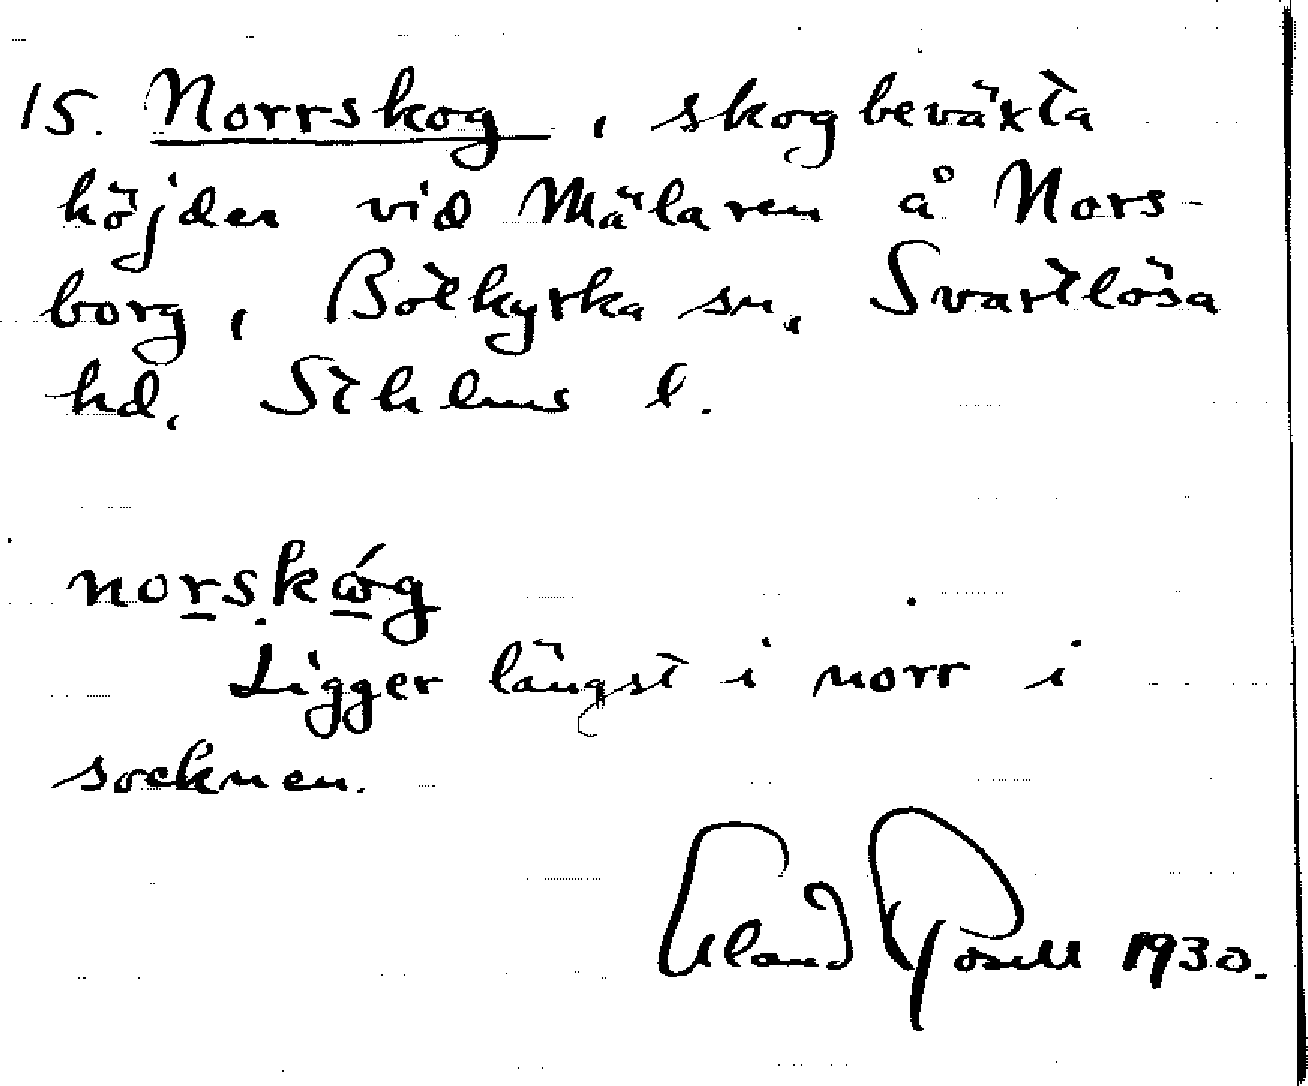 15. Norrskog, skogbeväxta
höjder vid Mälaren å Nors-
borg, Botkyrka sn, Svartlösa
hd, Sthlms l.
norskóg
Ligger längst i norr i
socknen.
Erland Rosell 1930.